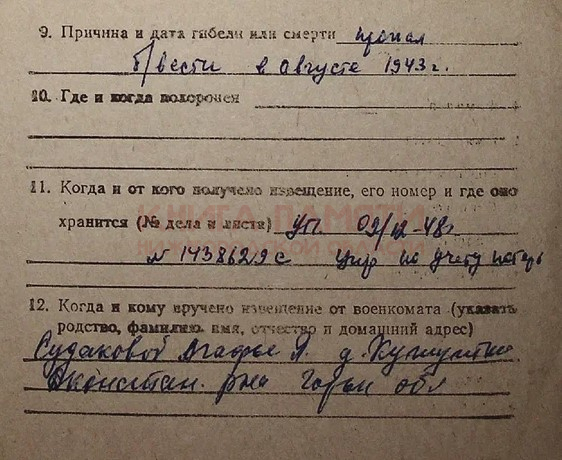 9. Причина и дата гибели или смерти пропал
б/вести в августе 1943 г.
10. Где и когда похоронен
11. Когда и от кого получено извещение, его номер и где оно
хранится (№ дела и листа) Уп. 09/12-48г
КНИГА ПАМЯТИ
НИЖЕГОРОДСКОЙ ОБЛАСТИ
№ 143862 9 с Упр по учету потерь
12. Когда и кому вручено извещение от военкомата (указать
родство, фамилию, имя, отчество и домашний адрес)
Судаковой Агафье Я. д.
Дконстан. рна Горьк обл